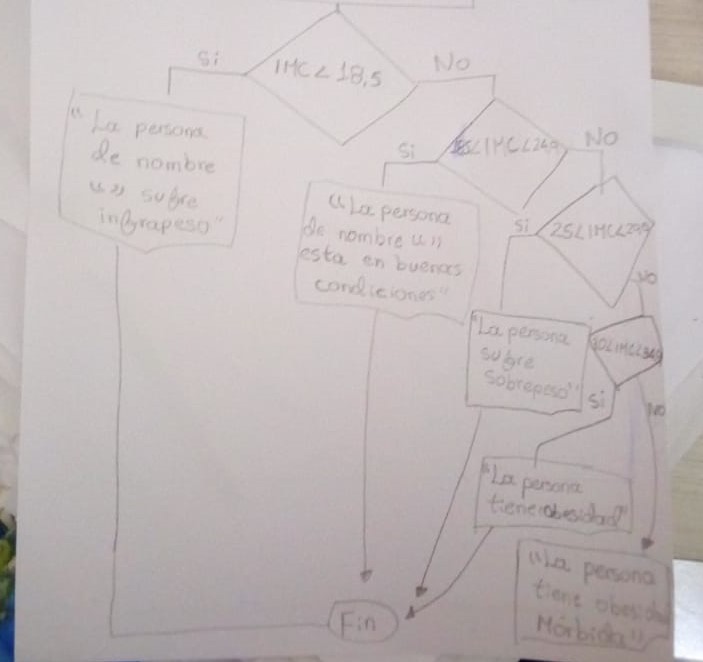 Si
IMC < 18,5
No
"La persona
de nombre
"" sufre
infrapeso"
Si
18,5<IMC<24,9
NO
"La persona
de nombre ""
esta en buenas
condiciones"
Si
25<IMC<29,9
NO
"La persona
sufre
Sobrepeso"
30<IMC<34,9
Si
NO
"La persona
tiene obesidad"
Fin
"La persona
tiene obesidad
Mórbida"